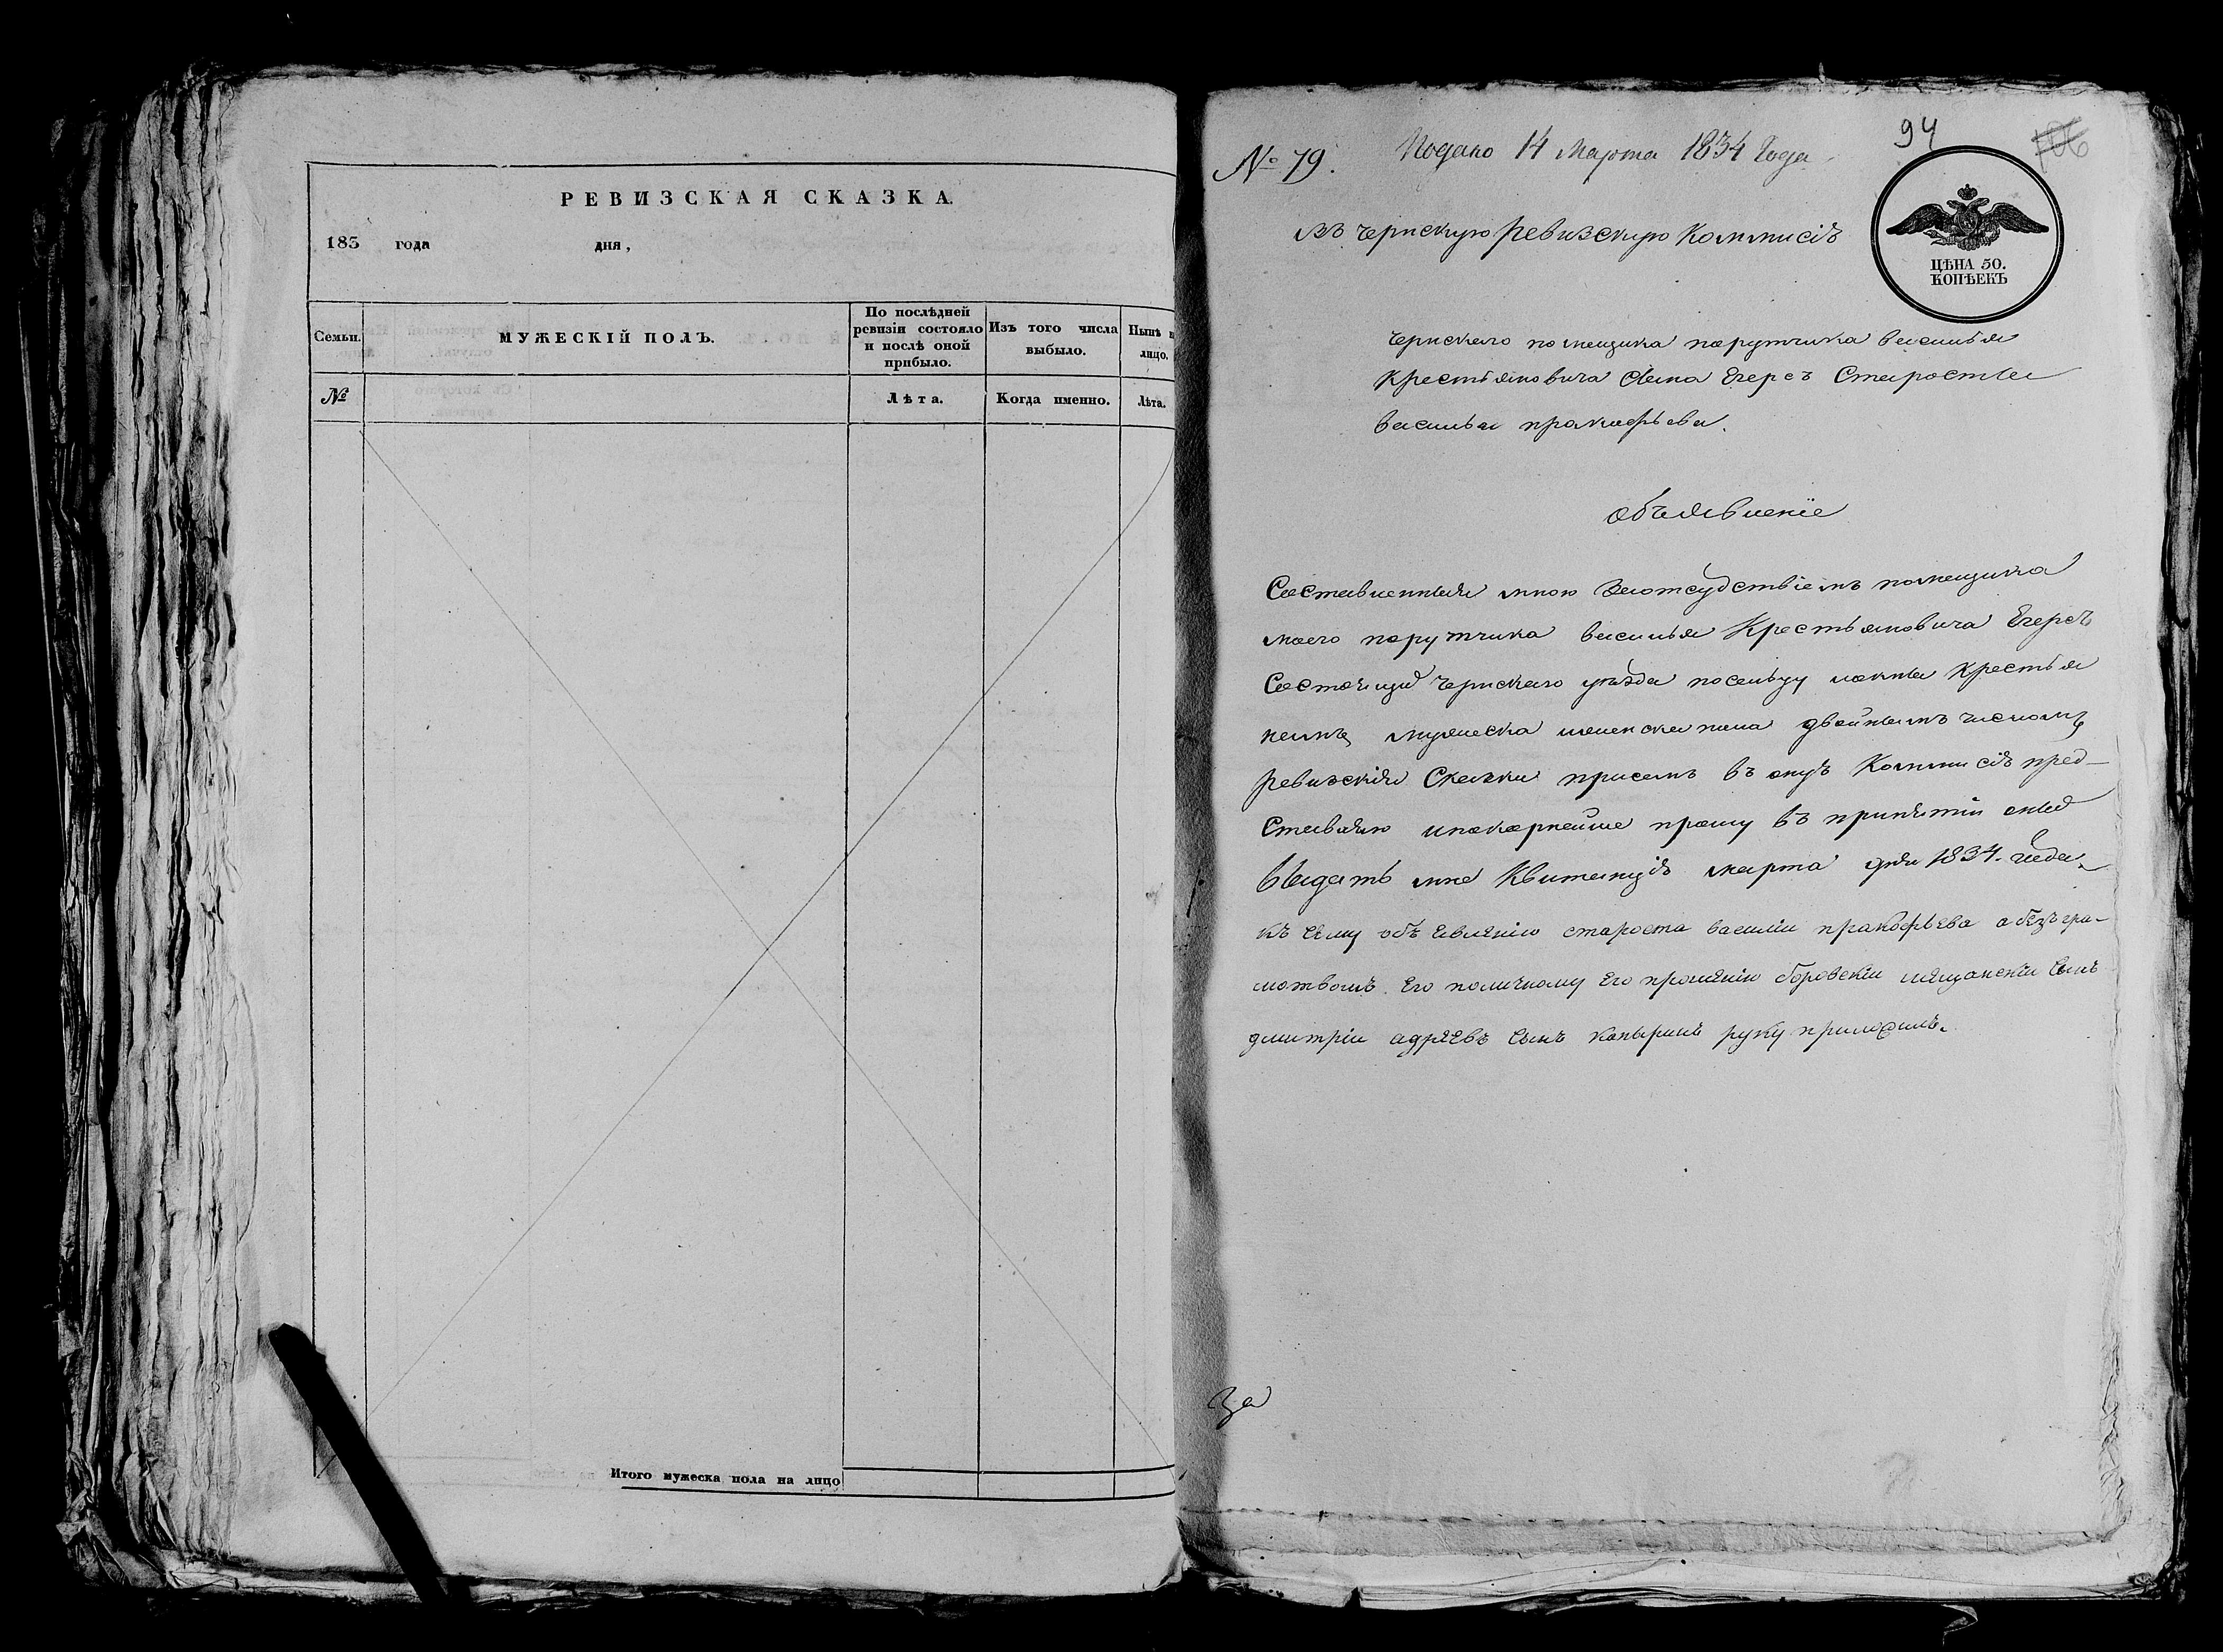 РЕВИЗСКАЯ СКАЗКА.
183 года дня,
Семьи. МУЖЕСКІЙ ПОЛЪ. По послѣдней ревизіи состояло и послѣ оной прибыло. Изъ того числа выбыло. Нынѣ н лицо.
№ Лѣта. Когда именно. Лѣта.
Итого мужеска пола на лицо
94
№ 79. Подано 14 Марта 1834 Года
ЦѢНА 50.
КОПѢЕКЪ
въ чернскую Ревизскую Коммисію
чернскаго помещика порутчика василья
Крестьяновича сына Егерсъ Старосты
василья пракофьева.
объявленіе
Составленныя мною Заотсудствіемъ помещика
моего порутчика василья Крестьяновича Егерсъ
Состоящие чернского уезда посельцу крестья
немъ мужеска иженска пола двойнымъ числомъ
ревизскія Скаски присемъ въ оную Коммисію пред-
Ставляю ипокорнейше прошу въ принятии оные
Выдать мне Квитанцію марта дня 1834. года.
къ сему объ евленію староста васили пракофьева абезъгра-
мотвомъ его поличному его прошенію боровскіи мещанскіи сынъ
дмитріи адреевъ сынъ копыринъ руку приложилъ.
За